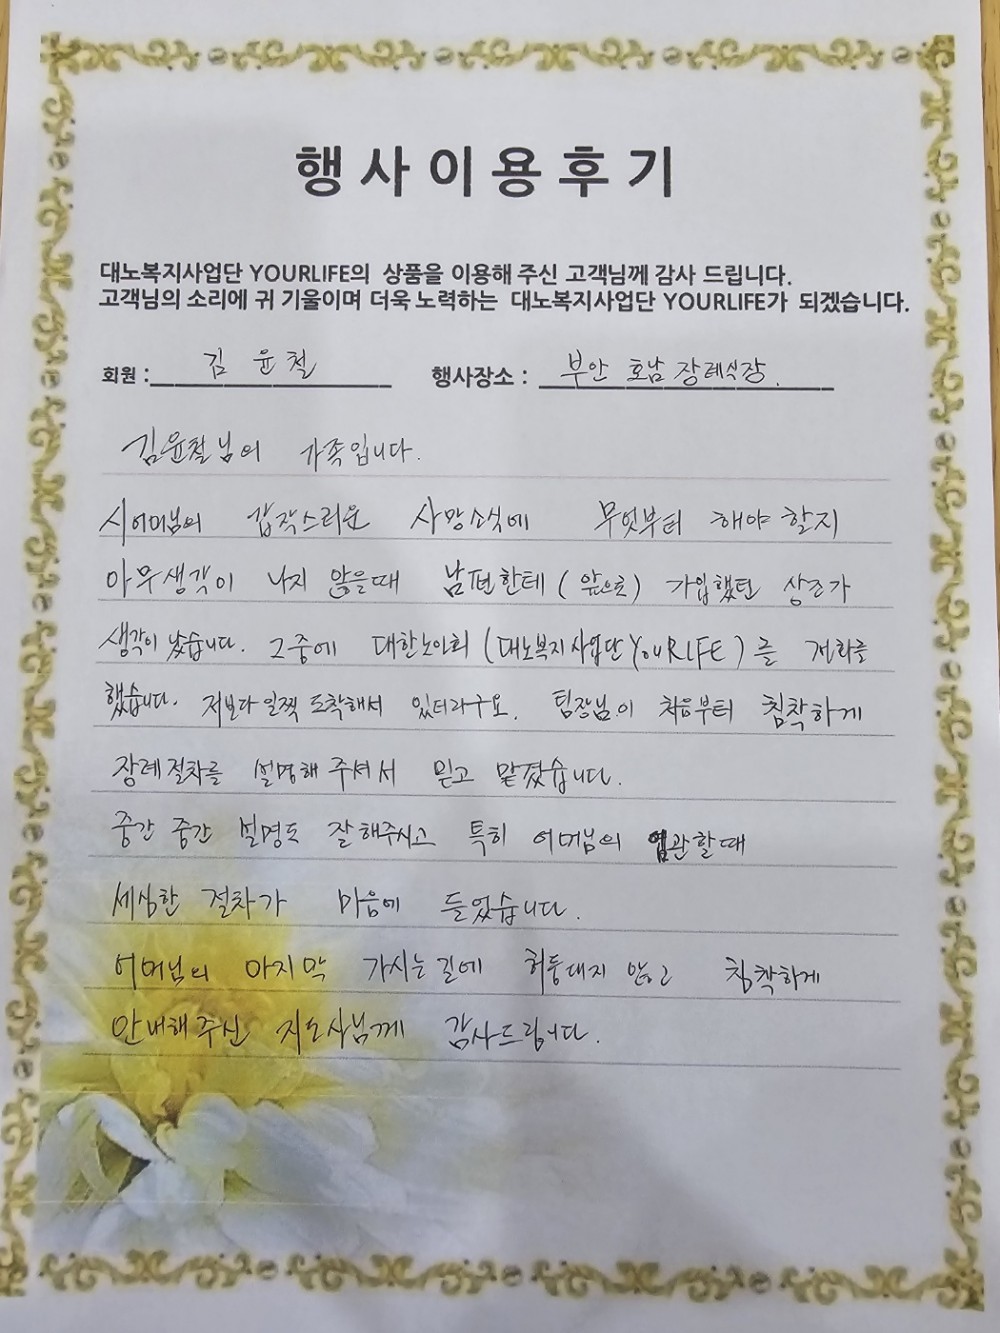 행사이용후기
대노복지사업단 YOURLIFE의 상품을 이용해 주신 고객님께 감사 드립니다.
고객님의 소리에 귀 기울이며 더욱 노력하는 대노복지사업단 YOURLIFE가 되겠습니다.
회원 : 김 윤 철 행사장소 : 부안 호남 장례식장.
김윤철님의 가족입니다.
시어머님의 갑작스리운 사망소식에 무엇부터 해야 할지
아무생각이 나지 않을때 남편한테 ( 앞으로) 가입했던 상조가
생각이 났습니다. 그중에 대한노인회 (대노복지사업단 YouRLIFE) 를 전화를
했습니다. 저보다 일찍 도착해서 있터라구요. 팀장님이 처음부터 침착하게
장례절차를 설명해 주셔서 믿고 맡겼습니다.
중간 중간 설명도 잘해주시고 특히 어머님의 염관할때
세심한 절차가 마음에 들었습니다.
어머님의 마지막 가시는길에 허둥대지 않고 침착하게
안내해주신 지도사님께 감사드립니다.